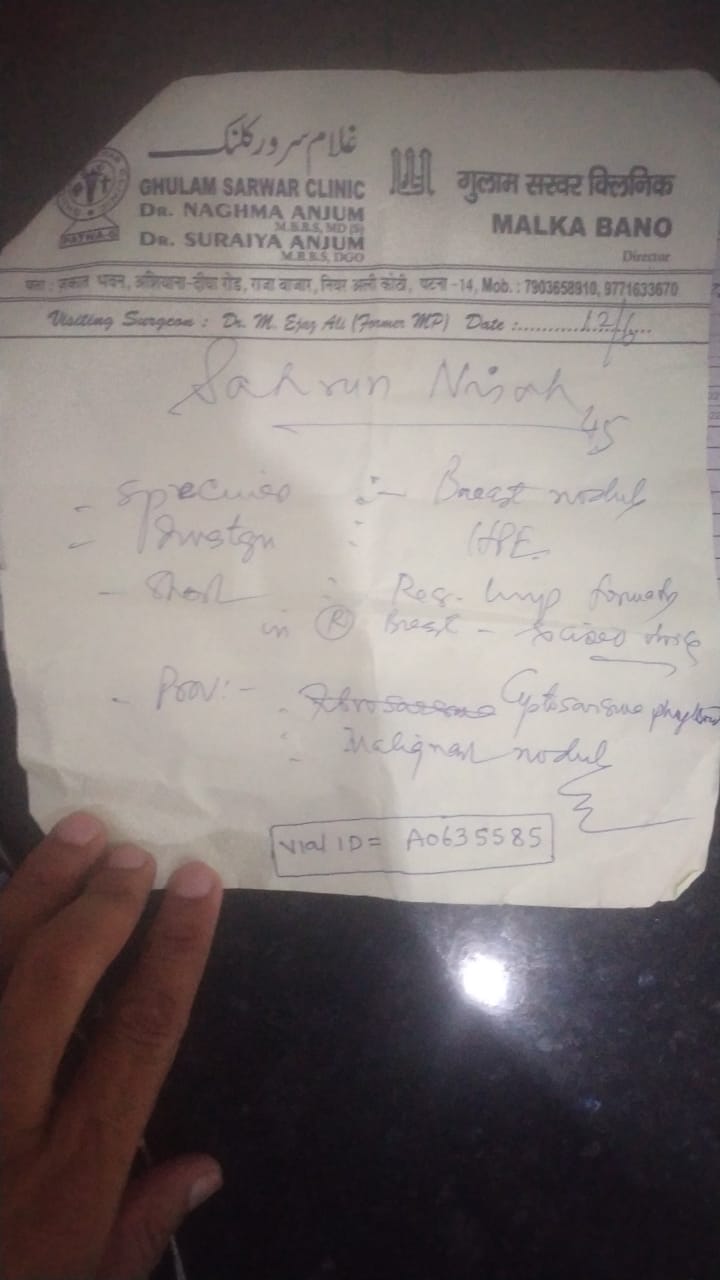 غلام سرور کلنک
GHULAM SARWAR CLINIC
DR. NAGHMA ANJUM
M.B.B.S, MD (S)
DR. SURAIYA ANJUM
M.B.B.S, DGO
PATNA-6
गुलाम सरवर क्लिनिक
MALKA BANO
Director
पता : ज़कात भवन, आशियाना-दीघा रोड, राजा बाजार, नियर अली कोठी, पटना -14, Mob. : 7903658910, 9771633670
Visiting Surgeon : Dr. M. Ejaz Ali (Former MP) Date :.......12/6...
Sahrun Nisah
45
- Specimen :- Breast nodule
- : HPE.
- Short : Rec. lump formed
in (R) Breast -
- Prov:- - Cystosarcoma phyllodes
: Malignant nodule
Vial ID = A0635585